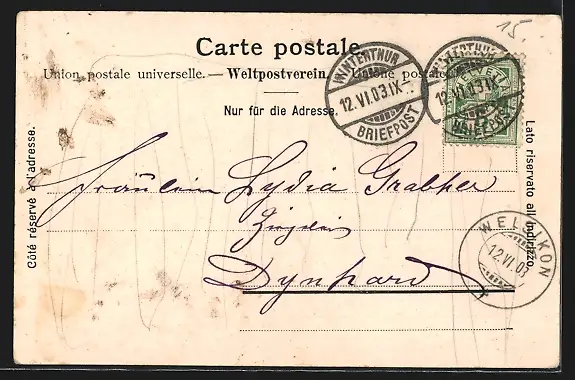 15.
Carte postale.
Union postale universelle. — Weltpostverein. — Unione postale
Nur für die Adresse.
WINTERTHUR
12.VI.03.IX
BRIEFPOST
WINTERTHUR
12.VI.03.IX
BRIEFPOST
HELVETIA
Côté réservé à l'adresse.
Lato riservato all'indirizzo.
Fräulein Lydia Grabher
Dynhard
WELSIKON
12.VI.03